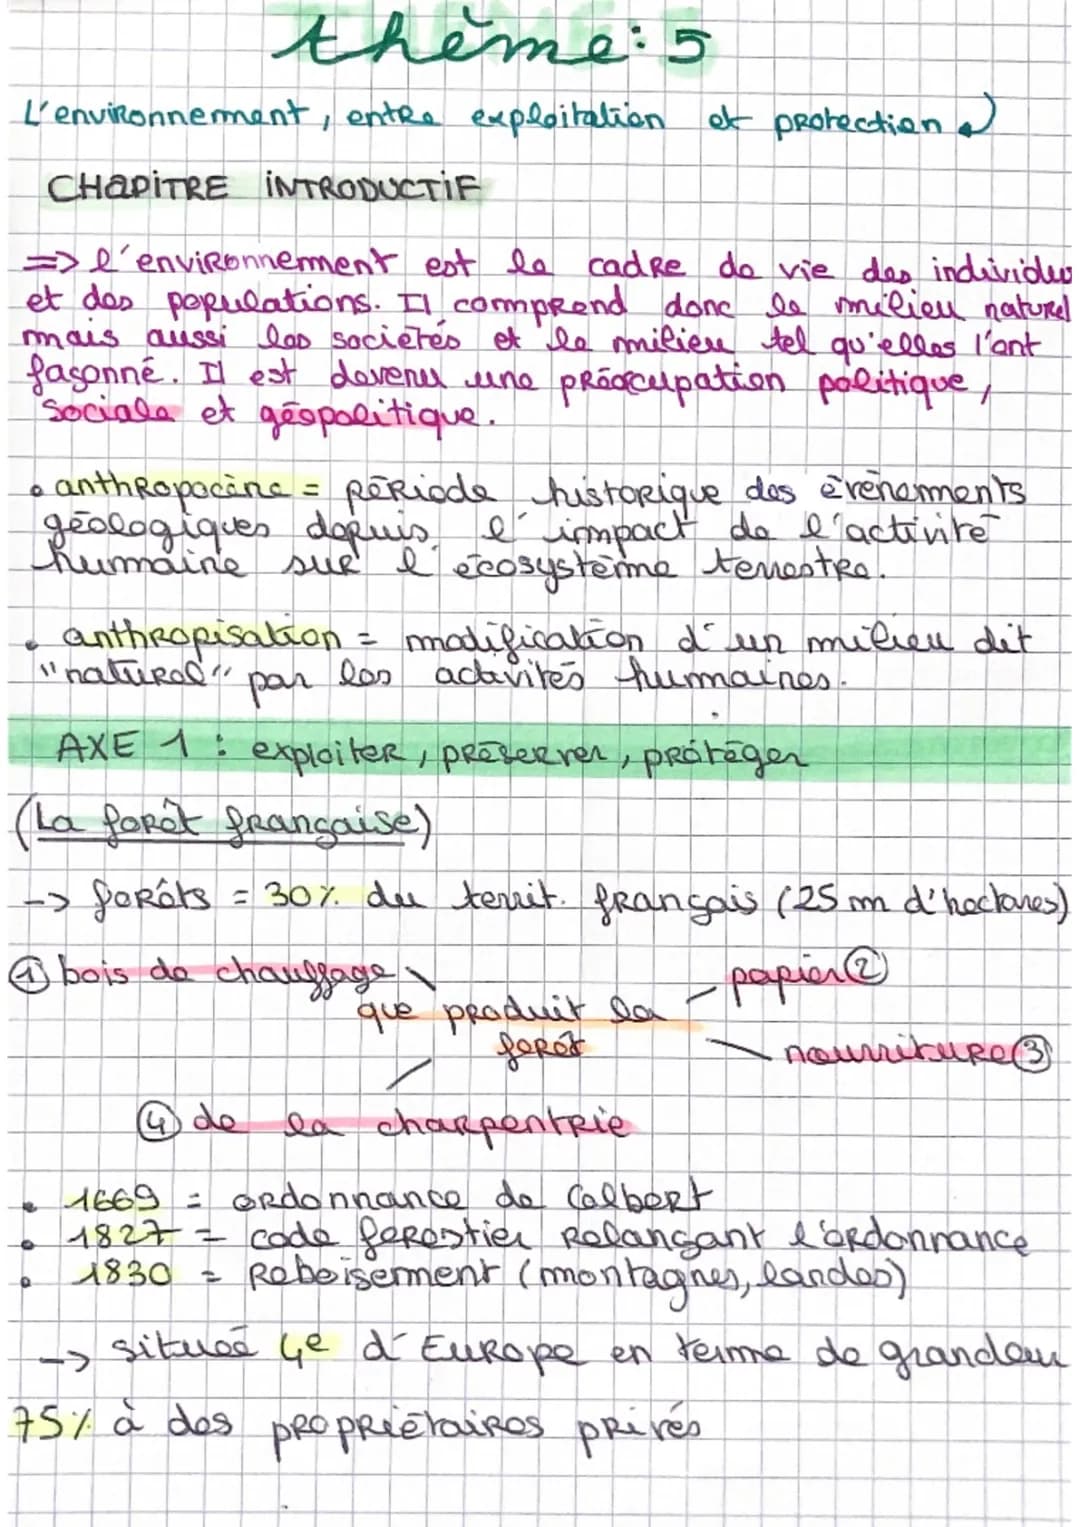 thème: 5
L'environnement, entre exploitation et protection
CHAPITRE INTRODUCTIF
=> l'environnement est le cadre de vie des individus
et des populations. Il comprend donc le milieu naturel
mais aussi les sociétés et le milieu tel qu'elles l'ont
façonné. Il est devenu une préoccupation politique,
sociale et géopolitique.
• anthropocène = période historique des évènements
géologiques depuis l'impact de l'activité
humaine sur l'écosystème terrestre.
• anthropisation = modification d'un milieu dit
"naturel" par les activités humaines.
AXE 1 : exploiter, préserver, protéger
(La forêt française)
-> forêts = 30% du territ. français (25 m d'hectares)
① bois de chauffage
papier ②
que produit la
forêt
nourriture ③
④ de la charpentrie
• 1669 = ordonnance de Colbert
• 1827 = code forestier relançant l'ordonnance
• 1830 = Reboisement (montagnes, landes)
-> située 4e d'Europe en terme de grandeur
75% à des propriétaires privés